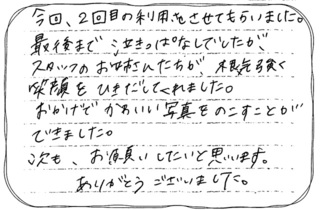 今回、2回目の利用をさせてもらいました。
最後まで泣きっぱなしでしたが、
スタッフのお姉さんたちが、根気強く
笑顔をひきだしてくれました。
おかげでかわいい写真をのこすことが
できました。
次も、お願いしたいと思います。
ありがとうございました。